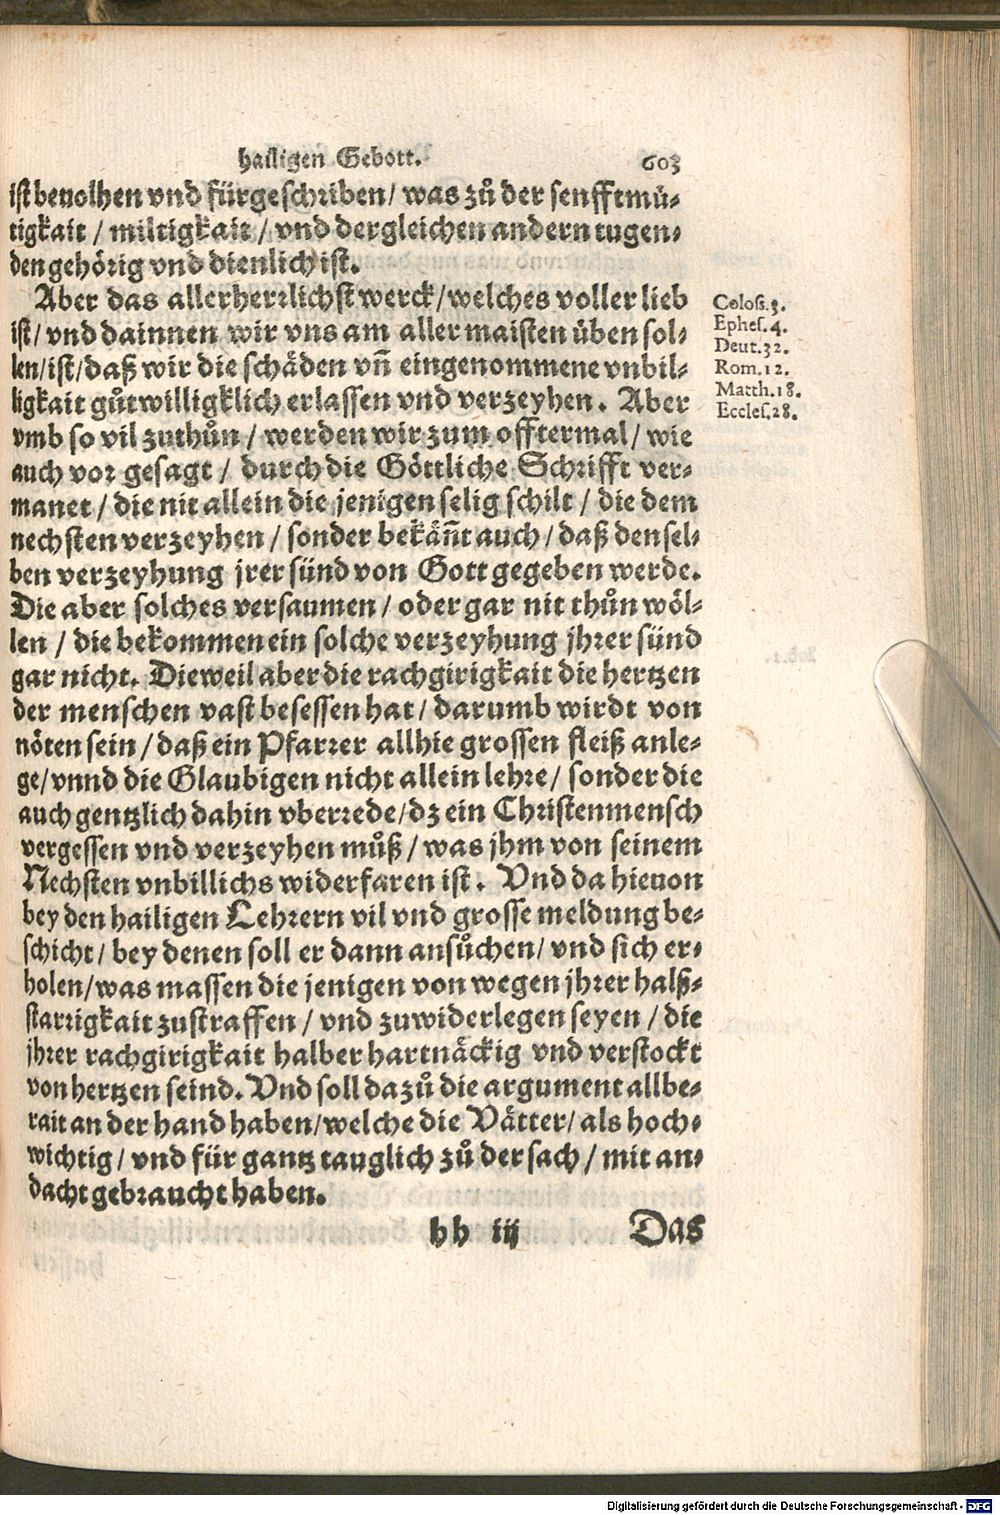 hailigen Gebott. 603
ist beuolhen vnd fürgeschriben/ was zů der senfftmü-
tigkait / miltigkait / vnd dergleichen andern tugen-
den gehörig vnd dienlich ist.
Aber das allerherrlichst werck/welches voller lieb
ist/ vnd dainnen wir vns am aller maisten üben sol-
len/ist/daß wir die schäden vñ eingenommene vnbil-
ligkait gůtwilligklich erlassen vnd verzeyhen. Aber
vmb so vil zuthůn / werden wir zum offtermal/ wie
auch vor gesagt / durch die Göttliche Schrifft ver-
manet / die nit allein die jenigen selig schilt / die dem
nechsten verzeyhen / sonder bekäñt auch / daß densel-
ben verzeyhung jrer sünd von Gott gegeben werde.
Die aber solches versaumen / oder gar nit thůn wöl-
len / die bekommen ein solche verzeyhung jhrer sünd
gar nicht. Dieweil aber die rachgirigkait die hertzen
der menschen vast besessen hat / darumb wirdt von
nöten sein / daß ein Pfarrer allhie grossen fleiß anle-
ge/vnnd die Glaubigen nicht allein lehre/ sonder die
auch gentzlich dahin vberrede/dz ein Christenmensch
vergessen vnd verzeyhen můß / was jhm von seinem
Nechsten vnbillichs widerfaren ist. Vnd da hieuon
bey den hailigen Lehrern vil vnd grosse meldung be-
schicht/ bey denen soll er dann ansůchen/ vnd sich er-
holen/was massen die jenigen von wegen jhrer halß-
starrigkait zustraffen / vnd zuwiderlegen seyen / die
jhrer rachgirigkait halber hartnäckig vnd verstockt
von hertzen seind. Vnd soll dazů die argument allbe-
rait an der hand haben/welche die Vätter/ als hoch-
wichtig / vnd für gantz tauglich zů der sach / mit an-
dacht gebraucht haben.
hh iij Das
Colos.3.
Ephes.4.
Deut.32.
Rom.12.
Matth.18.
Eccles.28.
Digitalisierung gefördert durch die Deutsche Forschungsgemeinschaft - DFG